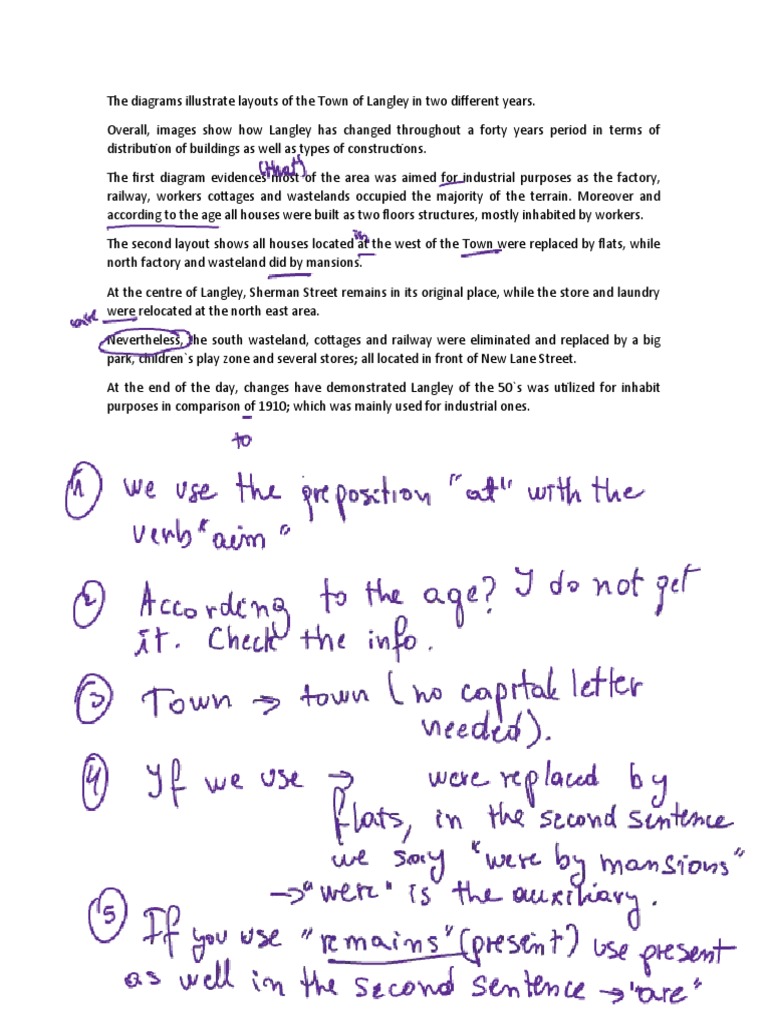 The diagrams illustrate layouts of the Town of Langley in two different years.
Overall, images show how Langley has changed throughout a forty years period in terms of
distribution of buildings as well as types of constructions.
(that)
The first diagram evidences most of the area was aimed for industrial purposes as the factory,
railway, workers cottages and wastelands occupied the majority of the terrain. Moreover and
according to the age all houses were built as two floors structures, mostly inhabited by workers.
in
The second layout shows all houses located at the west of the Town were replaced by flats, while
north factory and wasteland did by mansions.
At the centre of Langley, Sherman Street remains in its original place, while the store and laundry
were relocated at the north east area.
Nevertheless, the south wasteland, cottages and railway were eliminated and replaced by a big
park, children`s play zone and several stores; all located in front of New Lane Street.
At the end of the day, changes have demonstrated Langley of the 50`s was utilized for inhabit
purposes in comparison of 1910; which was mainly used for industrial ones.
to
1 we use the preposition "at" with the
verb "aim"
2 According to the age? I do not get
it. Check the info.
3 Town → town (no capital letter
needed).
4 If we use → were replaced by
flats, in the second sentence
we say "were by mansions"
→ "were" is the auxiliary.
5 If you use "remains" (present) use present
as well in the second sentence → "are"